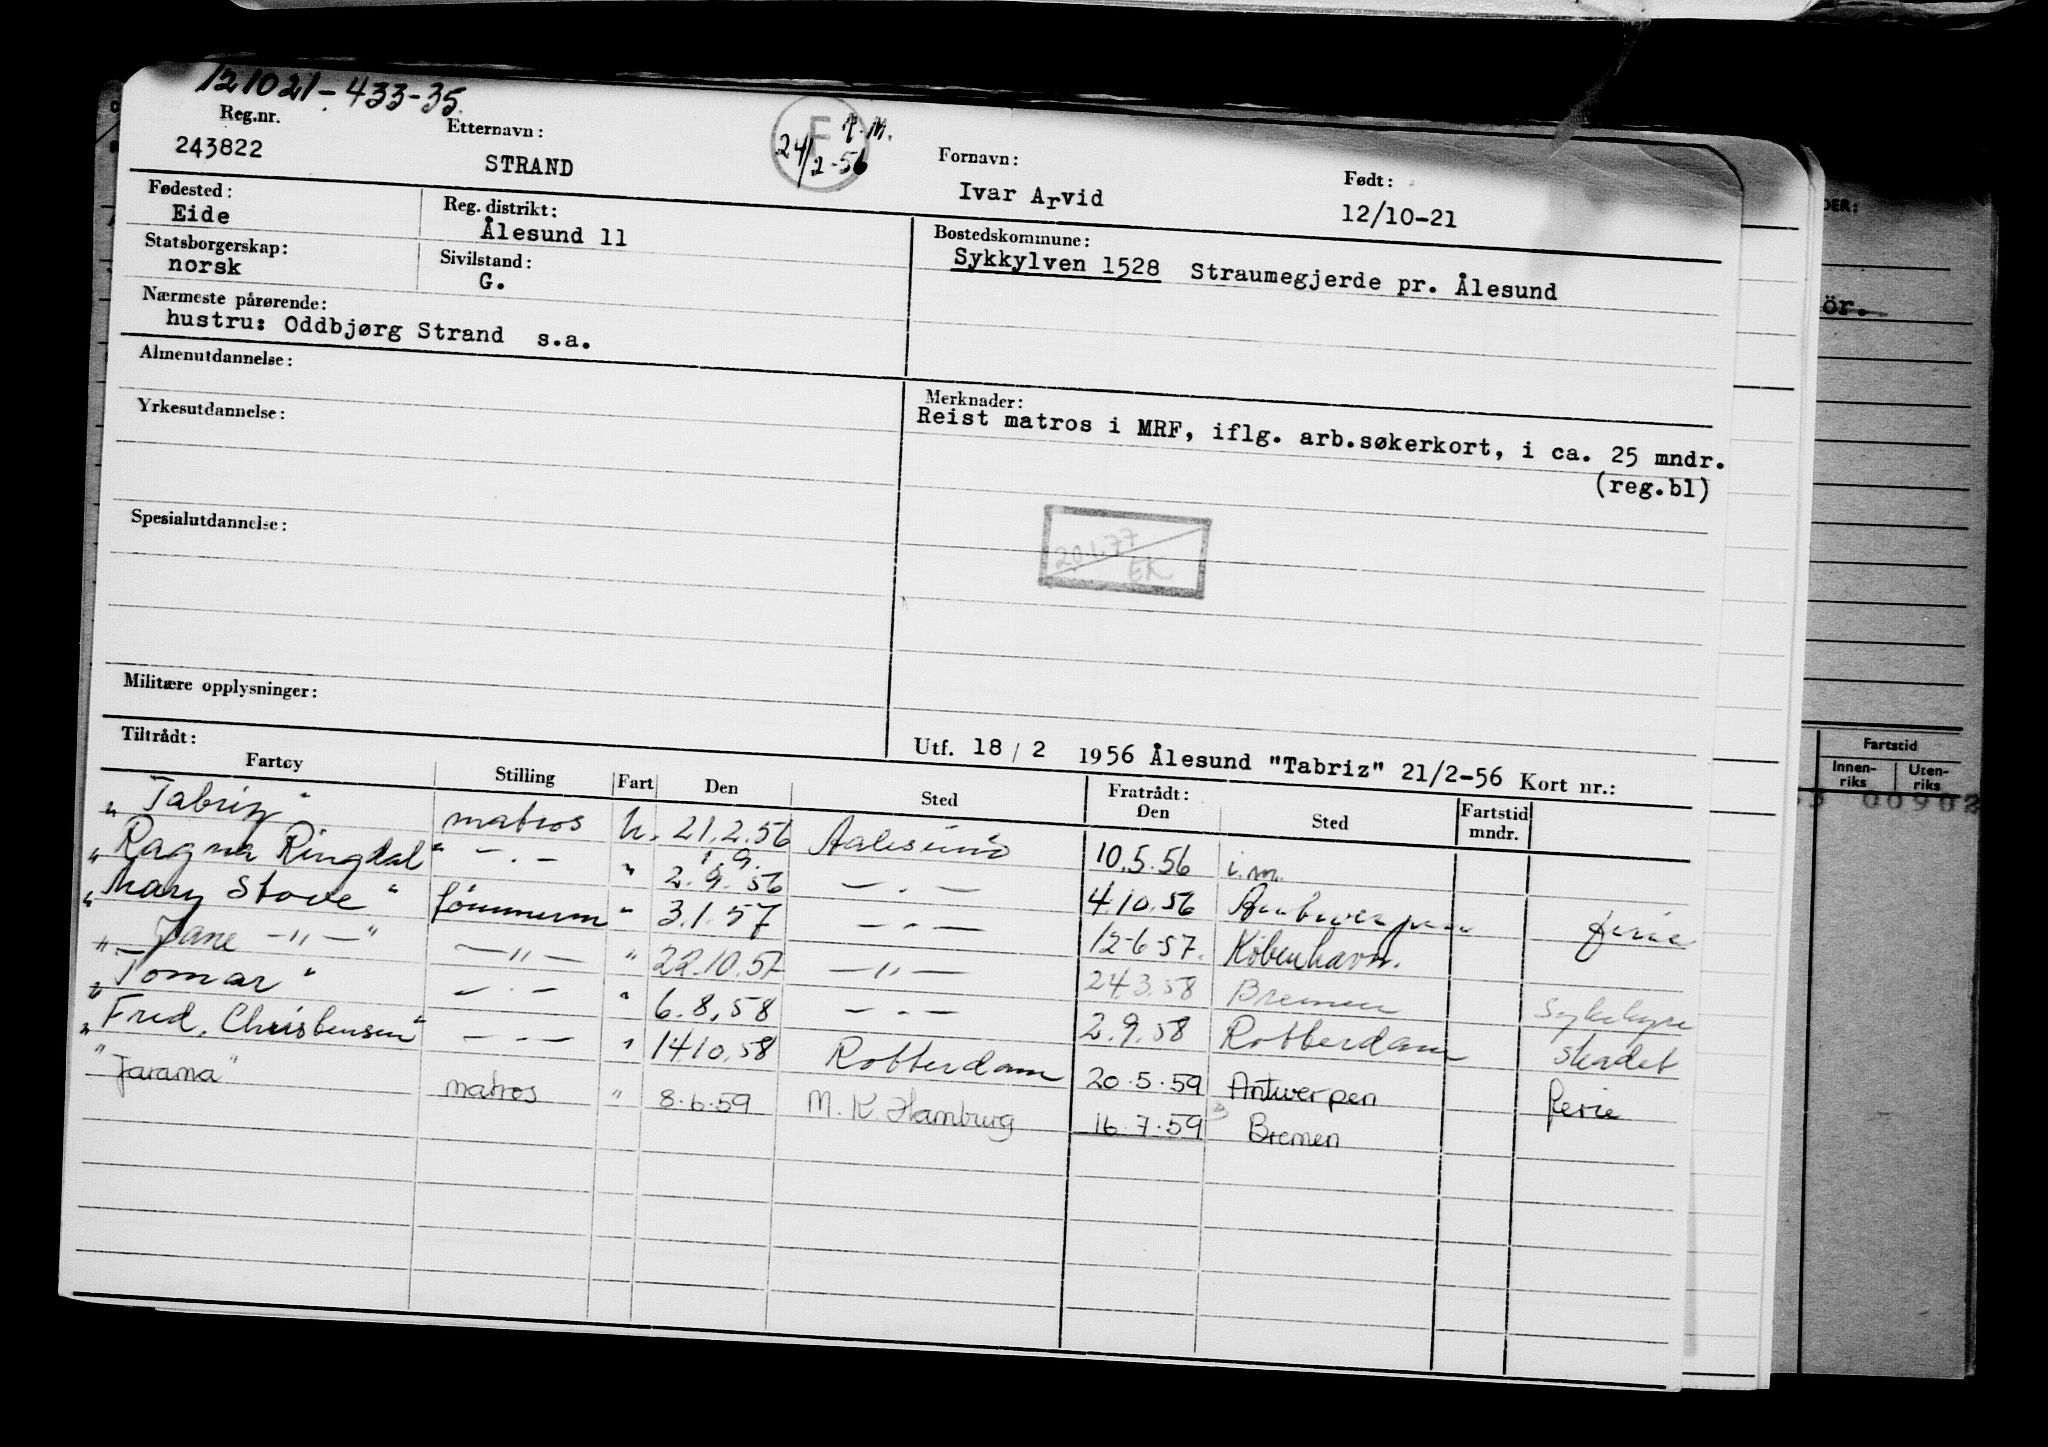 121021-433-35.
Reg.nr. Etternavn: F T.M. Fornavn: Født:
243822 STRAND 24/2-56 Ivar Arvid 12/10-21
Fødested: Reg. distrikt: Bostedskommune:
Eide Ålesund 11 Sykkylven 1528 Straumegjerde pr. Ålesund
Statsborgerskap: Sivilstand:
norsk G.
Nærmeste pårørende:
hustru: Oddbjørg Strand s.a.
Almenutdannelse: Merknader:
Reist matros i MRF, iflg. arb.søkerkort, i ca. 25 mndr.
(reg.bl)
Yrkesutdannelse:
Spesialutdannelse:
20.1.77
EK
Militære opplysninger:
Tiltrådt: Utf. 18 / 2 1956 Ålesund "Tabriz" 21/2-56 Kort nr.:
Fartøy Stilling Fart Den Sted Fratrådt: Den Sted Fartstid mndr.
"Tabriz" matros u. 21.2.56 Aalesund 10.5.56 i.m.
"Ragna Ringdal" — . — " 1.9. 2.9.56 — . — 4.10.56 Antwerpen ferie
"Mary Stove" tømmerm " 3.1.57 — . — 12-6-57. København.
"Jane —"—" —"— " 22.10.57 —"— 24.3.58 Bremen
"Tomar" — . — " 6.8.58 — . — 2.9.58 Rotterdam skadet
"Fred. Christensen" — . — " 14.10.58 Rotterdam 20.5.59 Antwerpen ferie
"Jarama" matros " 8.6.59 M.K. Hamburg 16.7.59 Bremen
DER:
ör.
Fartstid
Innen-riks Uten-riks
00902